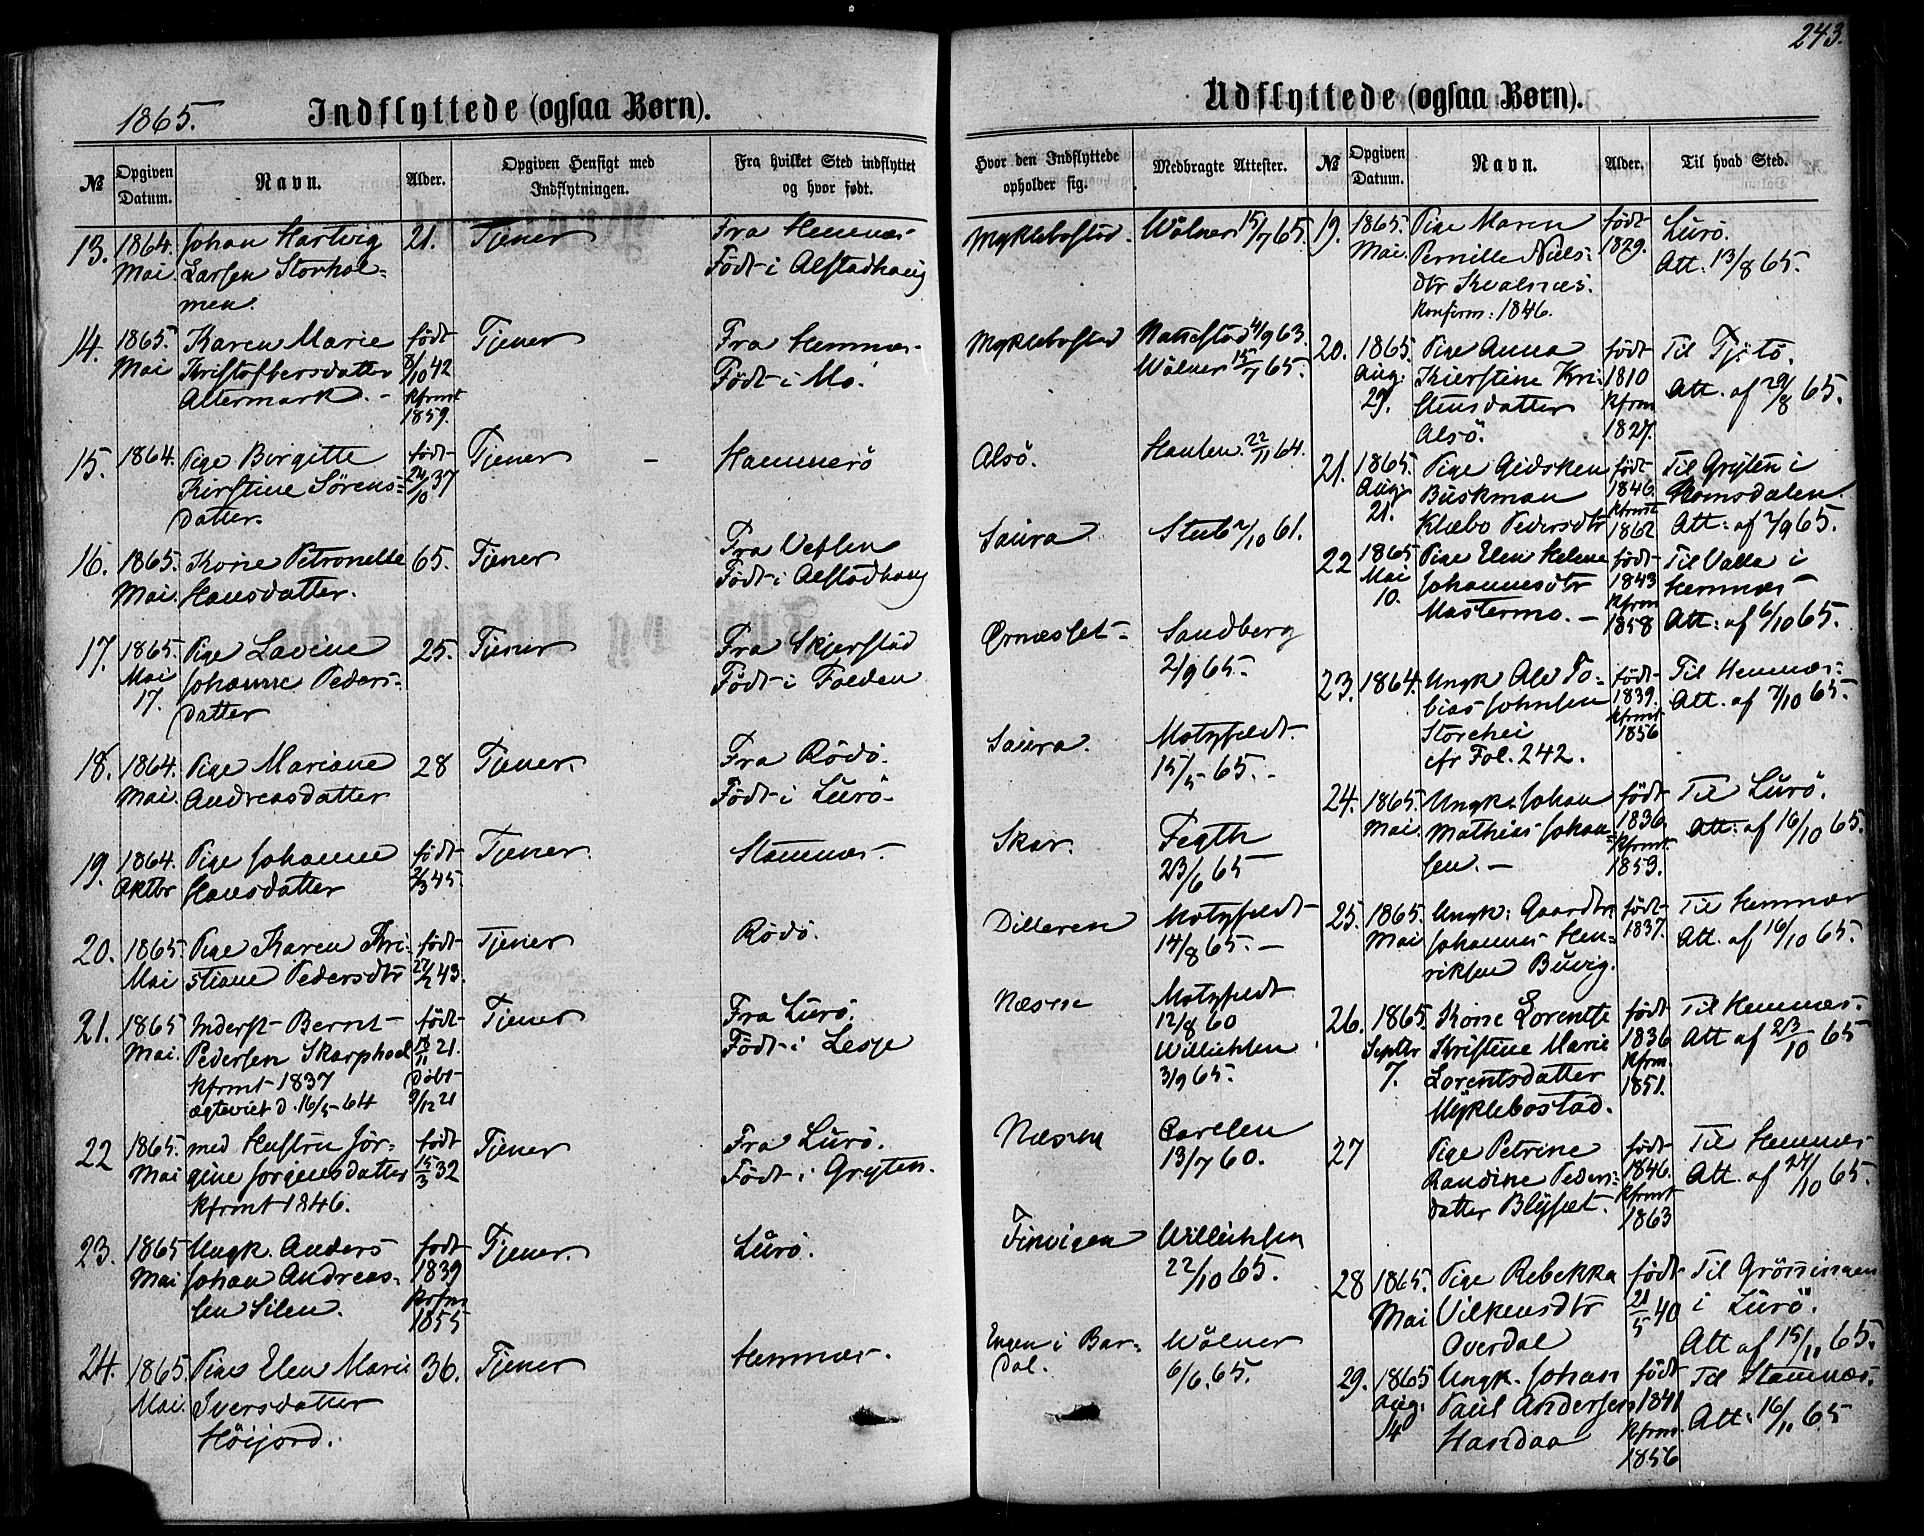 243.
1865.
Indflyttede (ogsaa Børn).
№
Opgiven Datum.
Navn.
Alder.
Opgiven Hensigt med Indflytningen.
Fra hvilket Sted indflyttet og hvor født.
Hvor den Indflyttede opholder sig.
Medbragte Attester.
13. 1864. Johan Hartvig 21. Tjener Fra Hemnæs Myklebostad. Wölner 15/7 65.
Mai Larsen Storhol- Födt i Alstadhaug
men.
14. 1865. Karen Marie födt Tjener Fra Hemnæs Myklebostad 4/9 63.
Mai Kristoffersdatter 8/10 42 Födt i Mo. Wölner 15/7 65.
Altermark. - kfrmt
1859.
15. 1864. Pige Birgitte födt Tjener Hammerö Alsö. 22/11 64.
Kirstine Sörens- 24/10 37
datter.
16. 1865. Kone Petronelle 65. Tjener Fra Vefsen Saura 61.
Mai. Hansdatter. Födt i Alstadhaug
17. 1865. Pige Lavine 25. Tjener Fra Skjerstad Ørnæsset Sandberg
Mai Johanne Peders- Födt i Folden 2/9 65.
17. datter
18. 1864. Pige Mariane 28 Tjener. Fra Rödö. Saura. Motzfeldt.
Mai. Andreasdatter Födt i Lurö 15/5 65. -
19. 1864. Pige Johanne födt Tjener. Stamnæs. Skar. Fegth
Oktbr Hansdatter 2/3 45. 23/6 65
20. 1865. Pige Karen Kri- födt Tjener Rödö. Dilleren Motzfeldt
Mai stiane Pedersdtr 43. 14/8 65. -
21. 1865 Inderst Bernt födt Tjener Fra Lurö. Næsne Motzfeldt
Mai. Pedersen 21. Födt i Lesje 12/8 60
kfrmt 1837 döbt Willichsen
ægteviet d. 16/5 64 9/12 21 3/9 65.
22 1865. med Hustru Jör- födt Tjener Fra Lurö. Næsne Carlsen
Mai gine Jörgensdatter 15/3 32 Födt i Gryten. 13/7 60.
kfrmt 1846.
23. 1865 Ungk. Anders födt Tjener. Lurö. Finvigen Willichsen
Mai Johan Andreas- 1839 22/10 65.
sen Silen. Kfrm
1855
24. 1865. Pige Elen Marie 36. Tjener Hemnæs. Engen i Bar- Wölner
Mai. Iversdatter dal. 6/6. 65.
Höijord.
Udflyttede (ogsaa Børn).
№
Opgiven Datum.
Navn.
Alder.
Til hvad Sted.
19. 1865. Pige Maren födt Lurö.
Mai. Pernille Niels- 1829. Att. 13/8 65.
dtr Kvalnæs.
Konfirm: 1846.
20. 1865. Pige Anna födt Til Tjötö.
Aug: Kierstine Kri- 1810 Att. af 29/8 65.
29. stensdatter kfrm
Alsö. 1827.
21. 1865. Pige Gidsken födt Til Gryten i
Aug: Buskman 1846. Romsdalen.
21. Klæbo Pedersdtr kfrmt Att: af 2/9 65.
1862
22 1865 Pige Elen Helene födt Til Valla i
Mai Johannesdtr 1843 Hemnæs
10. Mastermo. - kfrm Att: af 6/10 65.
1858
23. 1864. Ungk Ole To- födt Til Hemnæs:
bias Johnsen 1839. Att. af 7/10 65.
Storehei kfrmt
cfr Fol. 242. 1856
24. 1865. Ungk. Johan födt Til Lurö.
Mai. Mathias Johan- 1836 Att: af 16/10 65.
sen. - kfrmt
1853.
25. 1865. Ungk: Gaardbr födt Til Hemnæs
Mai Johannes Hen- 1837. Att. af 16/10 65.
riksen Buvig.
26. 1865. Kone Lorentse födt Til Hemnæs.
Septbr Kristine Marie 1836 Att af 23/10 65
7. Lorentsdatter kfrm.
Myklebostad. 1851.
27 Pige Petrine födt Til Hemnæs
Randine Peders- 1846. Att. af 24/10 65.
datter Blysæt. kfrmt
1863
28 1865. Pige Rebekka födt Til Grönningen
Mai Vilkensdtr 21/5 40 i Lurö.
Overdal Att af 15/11 65.
29. 1865 Ungk. Johan födt Til Stamnæs.
Aug: Paul Andersen 1841 Att: 16/11 65
14 Handaa kfrm.
1856